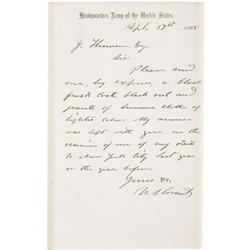 Headquarters Army of the United States.
Apl. 17th 1868
Esq.
Sir:
Please send
me, by express, a black
frock coat, black vest and
pants of summer cloth of
lighter color. My measure
was left with you on the
occasion of one of my visits
to New York City last year
or the year before.
Yours &c.
U. S. Grant